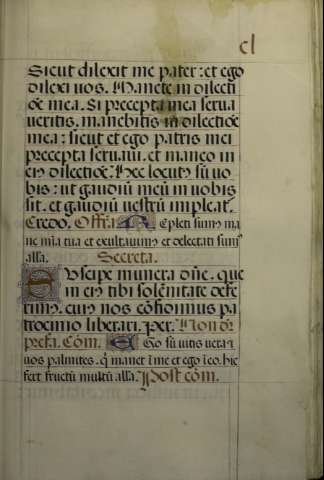 cl
Sicut dilexit me pater: et ego
dilexi uos. Manete in dilecti
õe mea. Si precepta mea serua
ueritis. manebitis in dilectiõe
mea: sicut et ego patris mei
precepta seruaui. et maneo in
eiꝰ dilectiõe. Hec locutꝰ sũ uo
bis: ut gaudiũ meũ in uobis
sit. et gaudiũ uestrũ impleat̃.
Credo. Offr̃a Repleti sumꝰ ma
ne mĩa tua et exultauimꝰ et delectati sumꝰ
alla. Secreta.
Suscipe munera dñe. que
in eiꝰ tibi solẽnitate defe
rimꝰ. cuiꝰ nos cõfidimus pa
trocinio liberari. Per. Non dr̃
prefa. Cõm. Ego sũ uitis uera et
uos palmites. q̃ manet ĩ me et ego ĩ eo. hic
fert fructũ multũ alla. Post cõm.